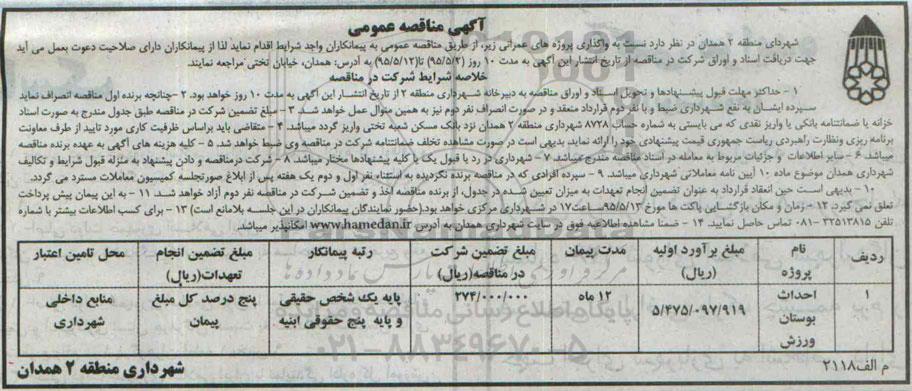 آگهی مناقصه عمومی
شهردای منطقه ۲ همدان در نظر دارد نسبت به واگذاری پروژه های عمرانی زیر، از طریق مناقصه عمومی به پیمانکاران واجد شرایط اقدام نماید لذا از پیمانکاران دارای صلاحیت دعوت بعمل می آید
جهت دریافت اسناد و اوراق شرکت در مناقصه از تاریخ انتشار این آگهی به مدت ۱۰ روز (۹۵/۵/۲) تا(۹۵/۵/۱۲) به آدرس: همدان، خیابان تختی مراجعه نمایند.
خلاصه شرایط شرکت در مناقصه
۱ - حداکثر مهلت قبول پیشنهادها و تحویل اسناد و اوراق مناقصه به دبیرخانه شهرداری منطقه ۲ از تاریخ انتشار این آگهی به مدت ۱۰ روز خواهد بود. ۲ -چنانچه برنده اول مناقصه انصراف نماید
سپرده ایشان به نفع شهرداری ضبط و با نفر دوم قرارداد منعقد و در صورت انصراف نفر دوم نیز به همین منوال عمل خواهد شد. ۳ - مبلغ تضمین شرکت در مناقصه طبق جدول مندرج به صورت اسناد
خزانه یا ضمانتنامه بانکی یا واریز نقدی که می بایستی به شماره حساب ۸۷۲۸ شهرداری منطقه ۲ همدان نزد بانک مسکن شعبه تختی واریز گردد میباشد. ۴ - متقاضی باید براساس ظرفیت کاری مورد تایید از طرف معاونت
برنامه ریزی ونظارت راهبردی ریاست جمهوری قیمت پیشنهادی خود را ارائه نماید بدیهی است در صورت مشاهده تخلف ضمانتنامه شرکت در مناقصه وی ضبط خواهد شد. ۵ - کلیه هزینه های آگهی به عهده برنده مناقصه
میباشد. ۶ - سایر اطلاعات و جزئیات مربوط به معامله در اسناد مناقصه مندرج میباشد. ۷ - شهرداری در رد یا قبول یک یا کلیه پیشنهادها مختار میباشد. ۸ - شرکت درمناقصه و دادن پیشنهاد به منزله قبول شرایط و تکالیف
شهرداری همدان موضوع ماده ۱۰ آیین نامه معاملاتی شهرداری میباشد. ۹ - سپرده افرادی که در مناقصه برنده نگردیده به استثناء نفر اول و دوم یک هفته پس از ابلاغ صورتجلسه کمیسیون معاملات مسترد می گردد.
۱۰ - بدیهی است حین انعقاد قرارداد به عنوان تضمین انجام تعهدات به میزان تعیین شده در جدول، از برنده مناقصه اخذ و تضمین شرکت در مناقصه نفر دوم آزاد خواهد شد. ۱۱ - به این پیمان پیش پرداخت
تعلق نمی گیرد. ۱۲ - زمان و مکان بازگشایی پاکت ها مورخ ۹۵/۵/۱۳ ساعت۱۷ در شهرداری مرکزی خواهد بود.(حضور نمایندگان پیمانکاران در این جلسه بلامانع است) ۱۳ - برای کسب اطلاعات بیشتر با شماره
تلفن ۳۲۵۱۳۸۱۵-۰۸۱ تماس حاصل نمایید. ۱۴ - ضمنا مشاهده اطلاعیه فوق در سایت شهرداری همدان به آدرس www.hamedan.ir امکانپذیر میباشد.
ردیف نام پروژه مبلغ برآورد اولیه (ریال) مدت پیمان مبلغ تضمین شرکت در مناقصه(ریال) رتبه پیمانکار مبلغ تضمین انجام تعهدات(ریال) محل تامین اعتبار
۱ احداث بوستان ورزش ۵/۴۷۵/۰۹۷/۹۱۹ ۱۲ ماه ۲۷۴/۰۰۰/۰۰۰ پایه یک شخص حقیقی و پایه پنج حقوقی ابنیه پنج درصد کل مبلغ پیمان منابع داخلی شهرداری
م الف۲۱۱۸
شهرداری منطقه ۲ همدان